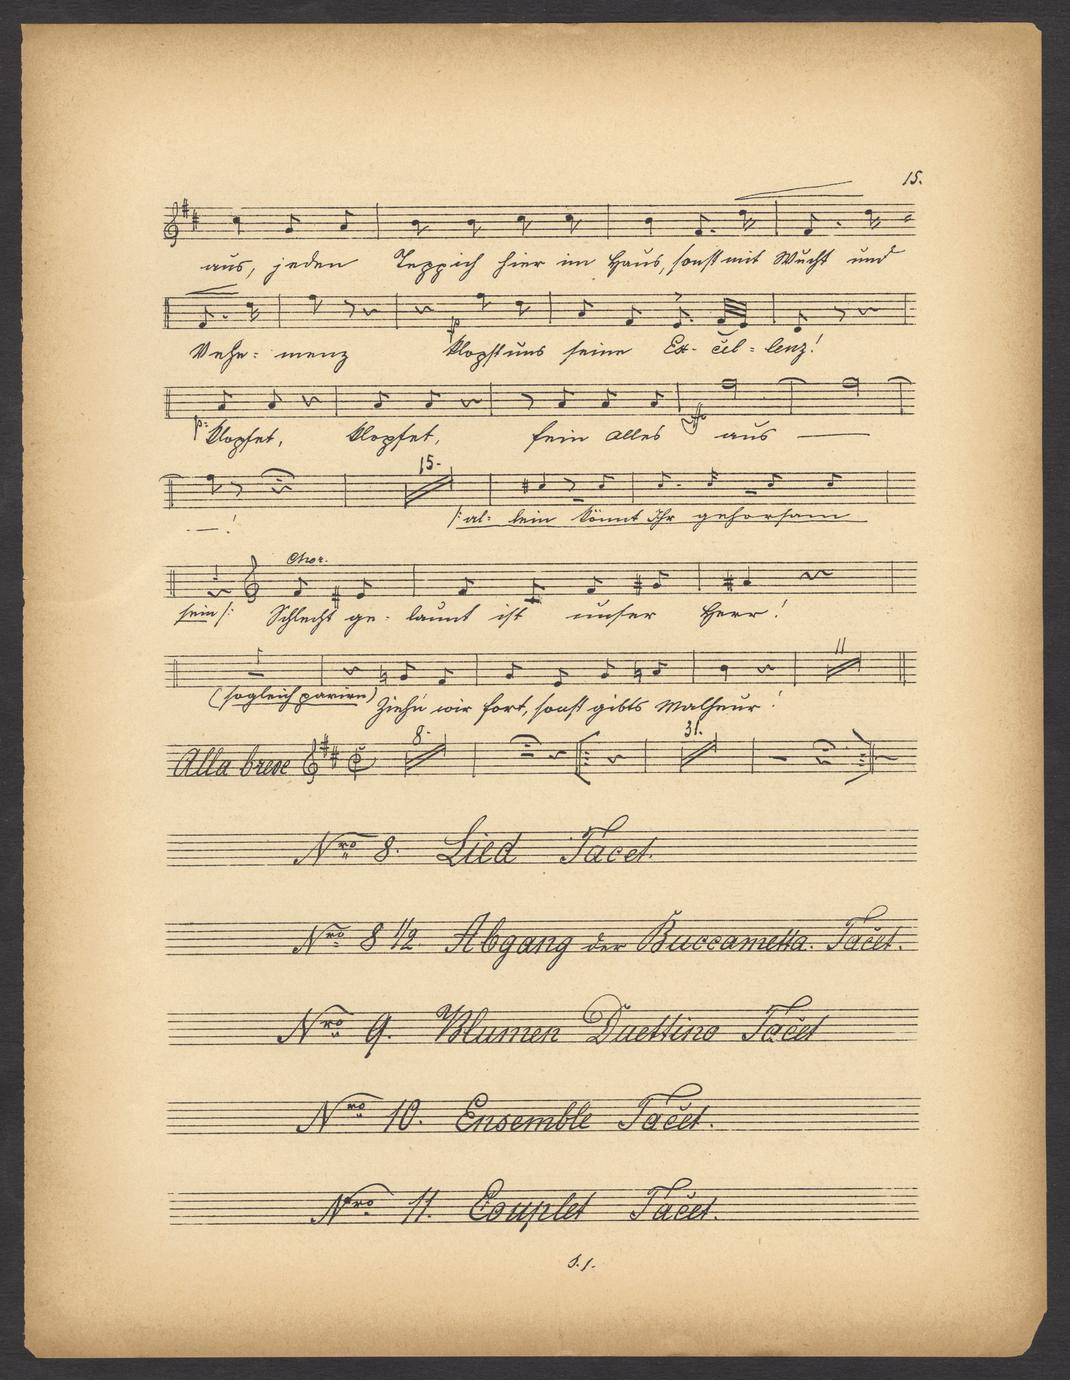 15.
aus, jeden Teppich hier im Haus, sonst mit Wucht und
Vehe- menz klopft uns seine Ex- cel- lenz!
p: klopfet, klopfet, fein alles ff aus
15.
/: al- lein könnt Ihr gehorsam
Chor.
sein :/ Schlecht ge- launt ist unser Herr!
(sogleich parirn) Ziehn wir fort, sonst gibts Malheur!
11
Alla breve 8. 31.
Nro 8. Lied Tacet.
Nro 8 1/2 Abgang der Buccametta. Tacet.
Nro 9. Blumen Duettino Tacet
Nro 10. Ensemble Tacet.
Nro 11. Couplet Tacet.